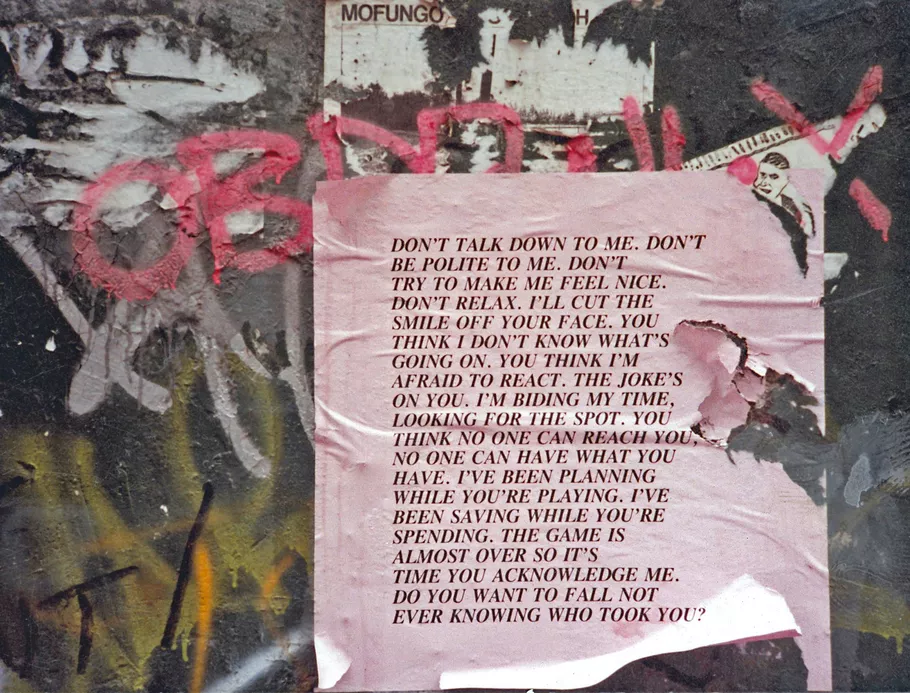 MOFUNGO
DON'T TALK DOWN TO ME. DON'T
BE POLITE TO ME. DON'T
TRY TO MAKE ME FEEL NICE.
DON'T RELAX. I'LL CUT THE
SMILE OFF YOUR FACE. YOU
THINK I DON'T KNOW WHAT'S
GOING ON. YOU THINK I'M
AFRAID TO REACT. THE JOKE'S
ON YOU. I'M BIDING MY TIME,
LOOKING FOR THE SPOT. YOU
THINK NO ONE CAN REACH YOU,
NO ONE CAN HAVE WHAT YOU
HAVE. I'VE BEEN PLANNING
WHILE YOU'RE PLAYING. I'VE
BEEN SAVING WHILE YOU'RE
SPENDING. THE GAME IS
ALMOST OVER SO IT'S
TIME YOU ACKNOWLEDGE ME.
DO YOU WANT TO FALL NOT
EVER KNOWING WHO TOOK YOU?